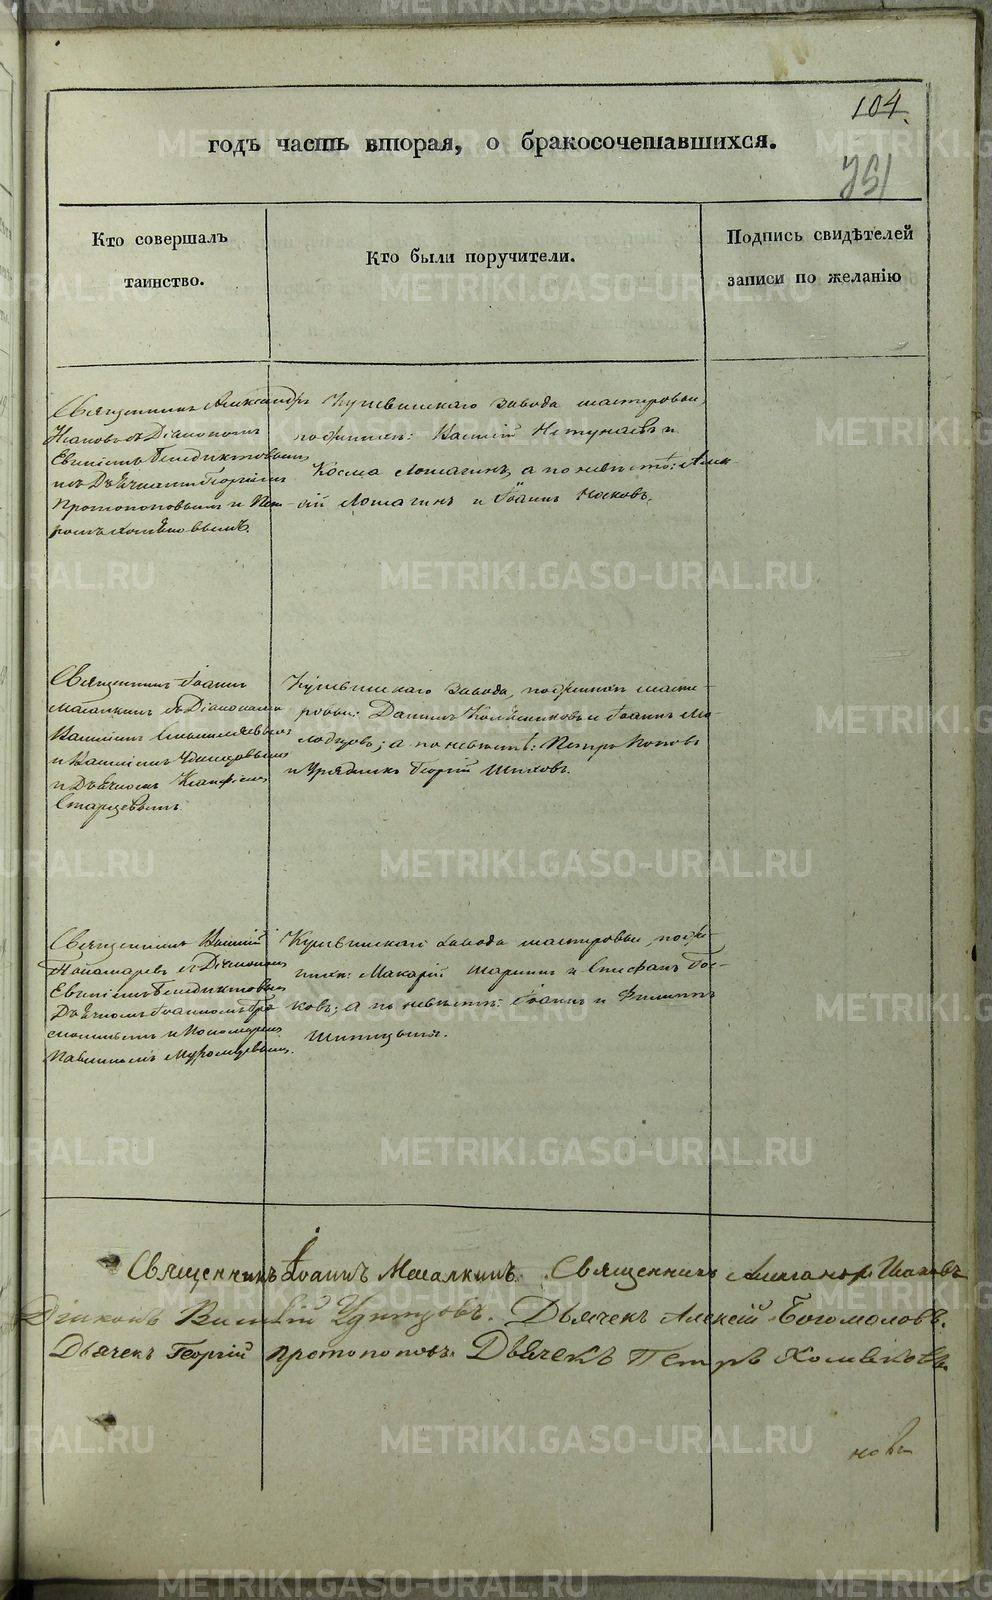 104.
годъ часть вторая, о бракосочетавшихся.
751
Кто совершалъ
таинство.
Кто были поручители.
Подпись свидѣтелей
записи по желанію
Священникъ Александръ
съ Діакономъ
Евгеніемъ Бенедиктовымъ
Георгіемъ
Протопоповымъ и Пет-
ромъ Хомяковымъ.
Кушвинскаго завода мастеровые,
по женихѣ: Василій и
Косма Ломагинъ, а по невѣстѣ: Алек-
сѣй Ломагинъ и Іоаннъ Носковъ.
Священникъ Іоаннъ
съ Діаконами
Василіемъ
и Василіемъ Удинцовымъ
и Дьячкомъ
Старцевымъ.
Кушвинскаго завода, по женихѣ масте-
ровые: Даніилъ и Іоаннъ Мо-
лодцовъ; а по невѣстѣ: Петръ Поповъ
и Урядникъ Георгій Шиховъ.
Священникъ Василій
Пономаревъ съ Діакономъ
Евгеніемъ Бенедиктовымъ
Дьячкомъ Іоанномъ
и Пономаремъ
Муромцевымъ.
Кушвинскаго завода мастеровые, по же-
нихѣ: Макарій и
а по невѣстѣ: Іоаннъ и Филиппъ
Шипицыны.
Священникъ Іоаннъ Священникъ Александръ
Діаконъ Василій Удинцовъ. Дьячекъ Алексій Богомоловъ.
Дьячекъ Георгій Протопоповъ. Дьячекъ Петръ Хомяковъ.
METRIKI.GASO-URAL.RU